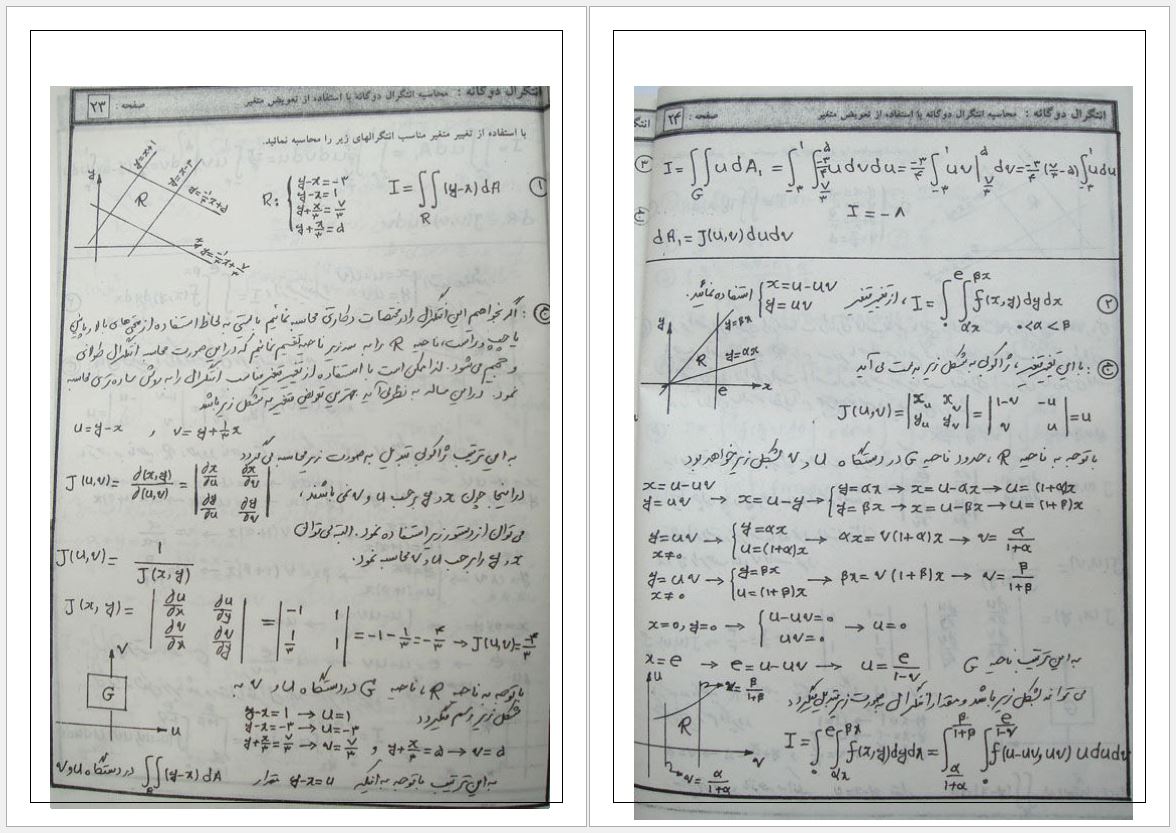 انتگرال دوگانه : محاسبه انتگرال دوگانه با استفاده از تعویض متغیر صفحه : ۲۳
با استفاده از تغییر متغیر مناسب انتگرالهای زیر را محاسبه نمائید.
۱ I = ∬_R (y-x) dA R: { y-x=-۳ , y-x=1 , y+x/۳=۷/۳ , y+x/۳=۵
y=x+1 y=x-۳ y=-1/۳x+۵ y=-1/۳x+۷/۳ R x y
ج : اگر بخواهیم این انتگرال را در مختصات دکارتی محاسبه نمایم بایستی به لحاظ استفاده از منحنی‌های بالا و پائین
یا چپ و راست، ناحیه R را به سه زیر ناحیه تقسیم نمائیم که در این صورت محاسبه انتگرال طولانی
و حجیم می‌شود. لذا ممکن است با استفاده از تغییر متغیر مناسب انتگرال را به روش ساده‌تری محاسبه
نمود. در این مساله به نظر می‌آید بهترین تعویض متغیر به شکل زیر باشد
u=y-x , v=y+1/۳x
به این ترتیب ژاکوبی تبدیل به صورت زیر محاسبه می‌گردد
J(u,v)= ∂(x,y)/∂(u,v) = | ∂x/∂u ∂x/∂v ; ∂y/∂u ∂y/∂v |
در اینجا چون x و y بر حسب u و v نمی‌باشند،
می‌توان از دستور زیر استفاده نمود. البته می‌توان
x و y را بر حسب u و v محاسبه نمود.
J(u,v)= 1/J(x,y)
J(x,y)= | ∂u/∂x ∂u/∂y ; ∂v/∂x ∂v/∂y | = | -1 1 ; 1/۳ 1 | = -1-1/۳=-۴/۳ → J(u,v)=-۳/۴
G v u
با توجه به ناحیه R ، ناحیه G در دستگاه u و v به
شکل زیر رسم میگردد
y-x=1 → u=1
y-x=-۳ → u=-۳
y+x/۳=۷/۳ → v=۷/۳ و y+x/۳=۵ → v=۵
به این ترتیب با توجه به اینکه y-x=u مقدار ∬_R (y-x) dA در دستگاه u و v
انتگرال دوگانه : محاسبه انتگرال دوگانه با استفاده از تعویض متغیر صفحه : ۲۴
۳ I = ∬_G u dA₁ = ∫_{-۳}^{1} ∫_{۷/۳}^{۵} -۳/۴ u dv du = -۳/۴ ∫_{-۳}^{1} uv |_{۷/۳}^{۵} dv = -۳/۴ (۷/۳-۵) ∫_{-۳}^{1} u du
I = -۸
dA₁ = J(u,v) du dv
۲ I = ∫_۰^e ∫_{αx}^{βx} f(x,y) dy dx ، از تغییر متغیر { x=u-uv , y=uv استفاده نمائید.
۰<α<β
y y=βx y=αx R e x
ج : با این تغییر متغیر، ژاکوبی به شکل زیر بدست می‌آید
J(u,v)= | x_u x_v ; y_u y_v | = | 1-v -u ; v u | = u
با توجه به ناحیه R ، حدود ناحیه G در دستگاه u و v بشکل زیر خواهد بود
x=u-uv
y=uv → x=u-y → { y=αx → x=u-αx → u=(1+α)x ; y=βx → x=u-βx → u=(1+β)x
y=uv x≠۰ → { y=αx ; u=(1+α)x → αx=v(1+α)x → v= α/1+α
y=uv x≠۰ → { y=βx ; u=(1+β)x → βx=v(1+β)x → v= β/1+β
x=۰, y=۰ → { u-uv=۰ ; uv=۰ → u=۰
x=e → e=u-uv → u= e/1-v
به این ترتیب ناحیه G
می‌تواند بشکل زیر باشد و مقدار انتگرال بصورت زیر تبدیل میگردد
u v= β/1+β R v v= α/1+α
I = ∫_۰^e ∫_{αx}^{βx} f(x,y) dy dx = ∫_{α/1+α}^{β/1+β} ∫_۰^{e/1-v} f(u-uv,uv) u du dv